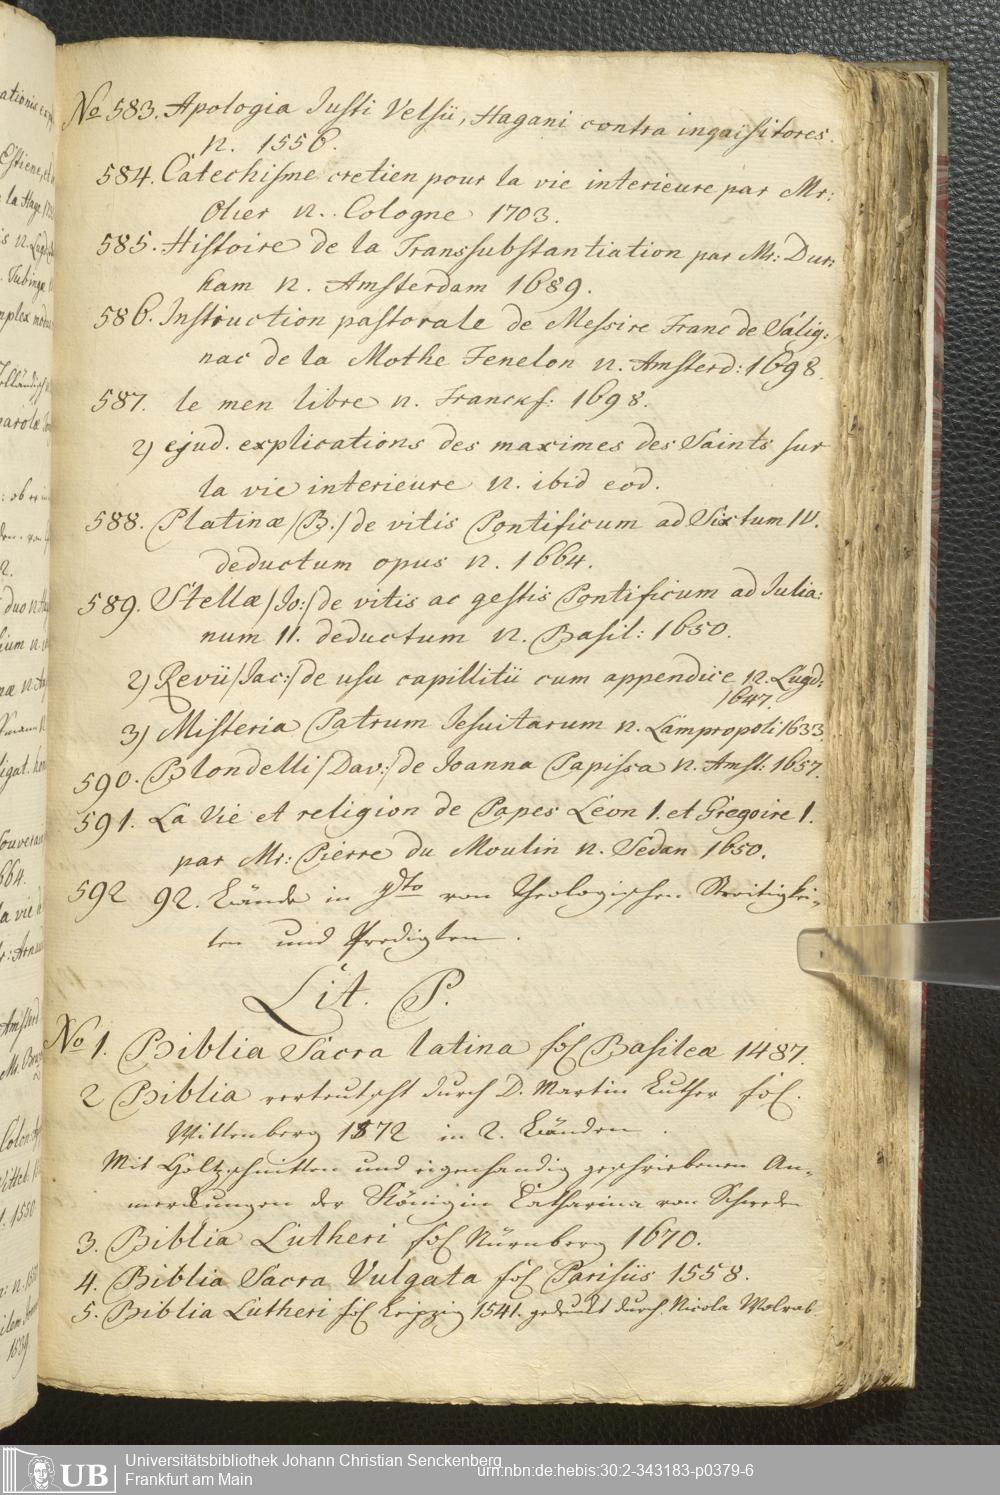 No 583. Apologia Justi Velsii, Hagani contra inquisitores.
12. 1556.
584. Catechisme cretien pour la vie interieure par Mr:
Olier 12. Cologne 1703.
585. Histoire de la Transsubstantiation par Mr: Dur:
ham 12. Amsterdam 1689.
586. Instruction pastorale de Messire Franc de Salig:
nac de la Mothe Fenelon 12. Amsterd: 1698.
587. le men libre 12. Franckf: 1698.
2) ejud. explications des maximes des Saints sur
la vie interieure 12. ibid eod.
588. Platinæ /B./ de vitis Pontificum ad Sixtum IV.
deductum opus 12. 1664.
589. Stellæ /Jo:/ de vitis ac gestis Pontificum ad Julia:
num II. deductum 12. Basil: 1650.
2) Revii /Jac:/ de usu capillitii cum appendice 12. Lugd:
1647.
3) Misteria Patrum Jesuitarum 12. Lampropoli 1633.
590. Blondelli /Dav:/ de Joanna Papissa 12. Amst: 1657.
591. La Vie et religion de Papes Leon I. et Gregoire I.
par Mr: Pierre du Moulin 12. Sedan 1650.
592 92. Bände in 12to von Theologischen Streitigkei-
ten und Predigten.
Lit. P.
No 1. Biblia Sacra latina fol Basileæ 1487.
2 Biblia verteutscht durch D. Martin Luther fol.
Wittenberg 1572 in 2. Bänden.
Mit Holtzschnitten und eigenhändig geschriebenen An-
merckungen der Königin Catharina von Schweden
3. Biblia Lutheri fol Nürnberg 1670.
4. Biblia Sacra Vulgata fol Parisiis 1558.
5. Biblia Lutheri fol Leipzig 1541. gedruckt durch Nicola Wolrab
Universitätsbibliothek Johann Christian Senckenberg
Frankfurt am Main
UB
urn:nbn:de:hebis:30:2-343183-p0379-6